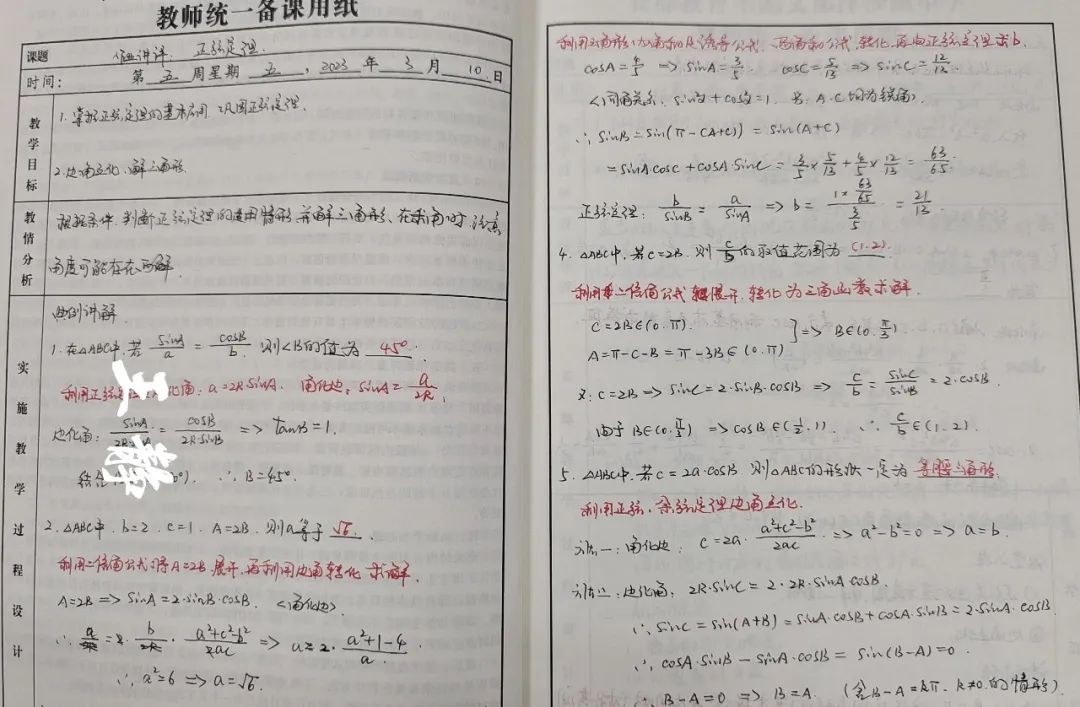 教师统一备课用纸
课题 习题讲评：正弦定理.
时间： 第 五 周星期 五 ，2023 年 3 月 10 日
教学目标
1.掌握正弦定理的基本应用 巩固正弦定理.
2.边角互化、解三角形.
教情分析
根据条件,判断正弦定理的适用情形,并解三角形、在求角时注意
角度可能存在两解.
实施教学过程设计
典例讲解
1.在△ABC中,若 sinA/a = cosB/b 则∠B的值为 45°.
利用正弦 化角：a=2R·sinA. 角化边：sinA= a/2R ;
边化角： sinA/2R·sinA = cosB/2R·sinB => tanB=1.
结合 ). ∴B=45°
2.△ABC中. b=2. c=1. A=2B. 则a等于 √6.
利用二倍角公式,将A=2B.展开,再利用边角转化 求解.
A=2B => SinA=2·sinB·cosB. <角化边>.
∴ a/2R = 2· b/2R · a²+c²-b²/2ac => a=2· a²+1-4/a .
∴ a²=6 => a=√6.
利用三角形内角和及诱导公式、两角和公式 转化,再由正弦定理求b.
cosA=4/5 => sinA=3/5. cosC=5/13 => sinC=12/13.
<同角关系：sin²α+cos²α=1. 另：A.C均为锐角>.
∴ SinB=Sin(π-(A+C)) = Sin(A+C)
=SinAcosC+cosA·SinC = 3/5×5/13+4/5×12/13 = 63/65.
正弦定理： b/SinB = a/SinA => b= 1×63/65 / 3/5 = 21/13.
4. △ABC中.若C=2B. 则 c/b 的取值范围为 (1.2).
利用二倍角公式 展开.转化为三角函数求解.
C=2B∈(0.π).
A=π-C-B=π-3B∈(0.π) } => B∈(0.π/3)
又：C=2B => SinC=2·SinB·cosB => c/b = SinC/SinB = 2·cosB.
由于B∈(0.π/3) => cosB∈(1/2.1). ∴ c/b ∈(1.2).
5. △ABC中.若c=2a·cosB 则△ABC的形状一定为 等腰三角形.
利用正弦、余弦定理边角互化.
法一：角化边. c=2a· a²+c²-b²/2ac => a²-b²=0 => a=b.
法二：边化角. 2R·SinC=2·2R·SinA·cosB.
∴ SinC=Sin(A+B)=SinA·cosB+cosA·SinB=2·SinA·cosB
∴ cosA·SinB-SinA·cosB=Sin(B-A)=0.
∴ B-A=0 => B=A. (舍B-A=kπ. k≠0.的情形)